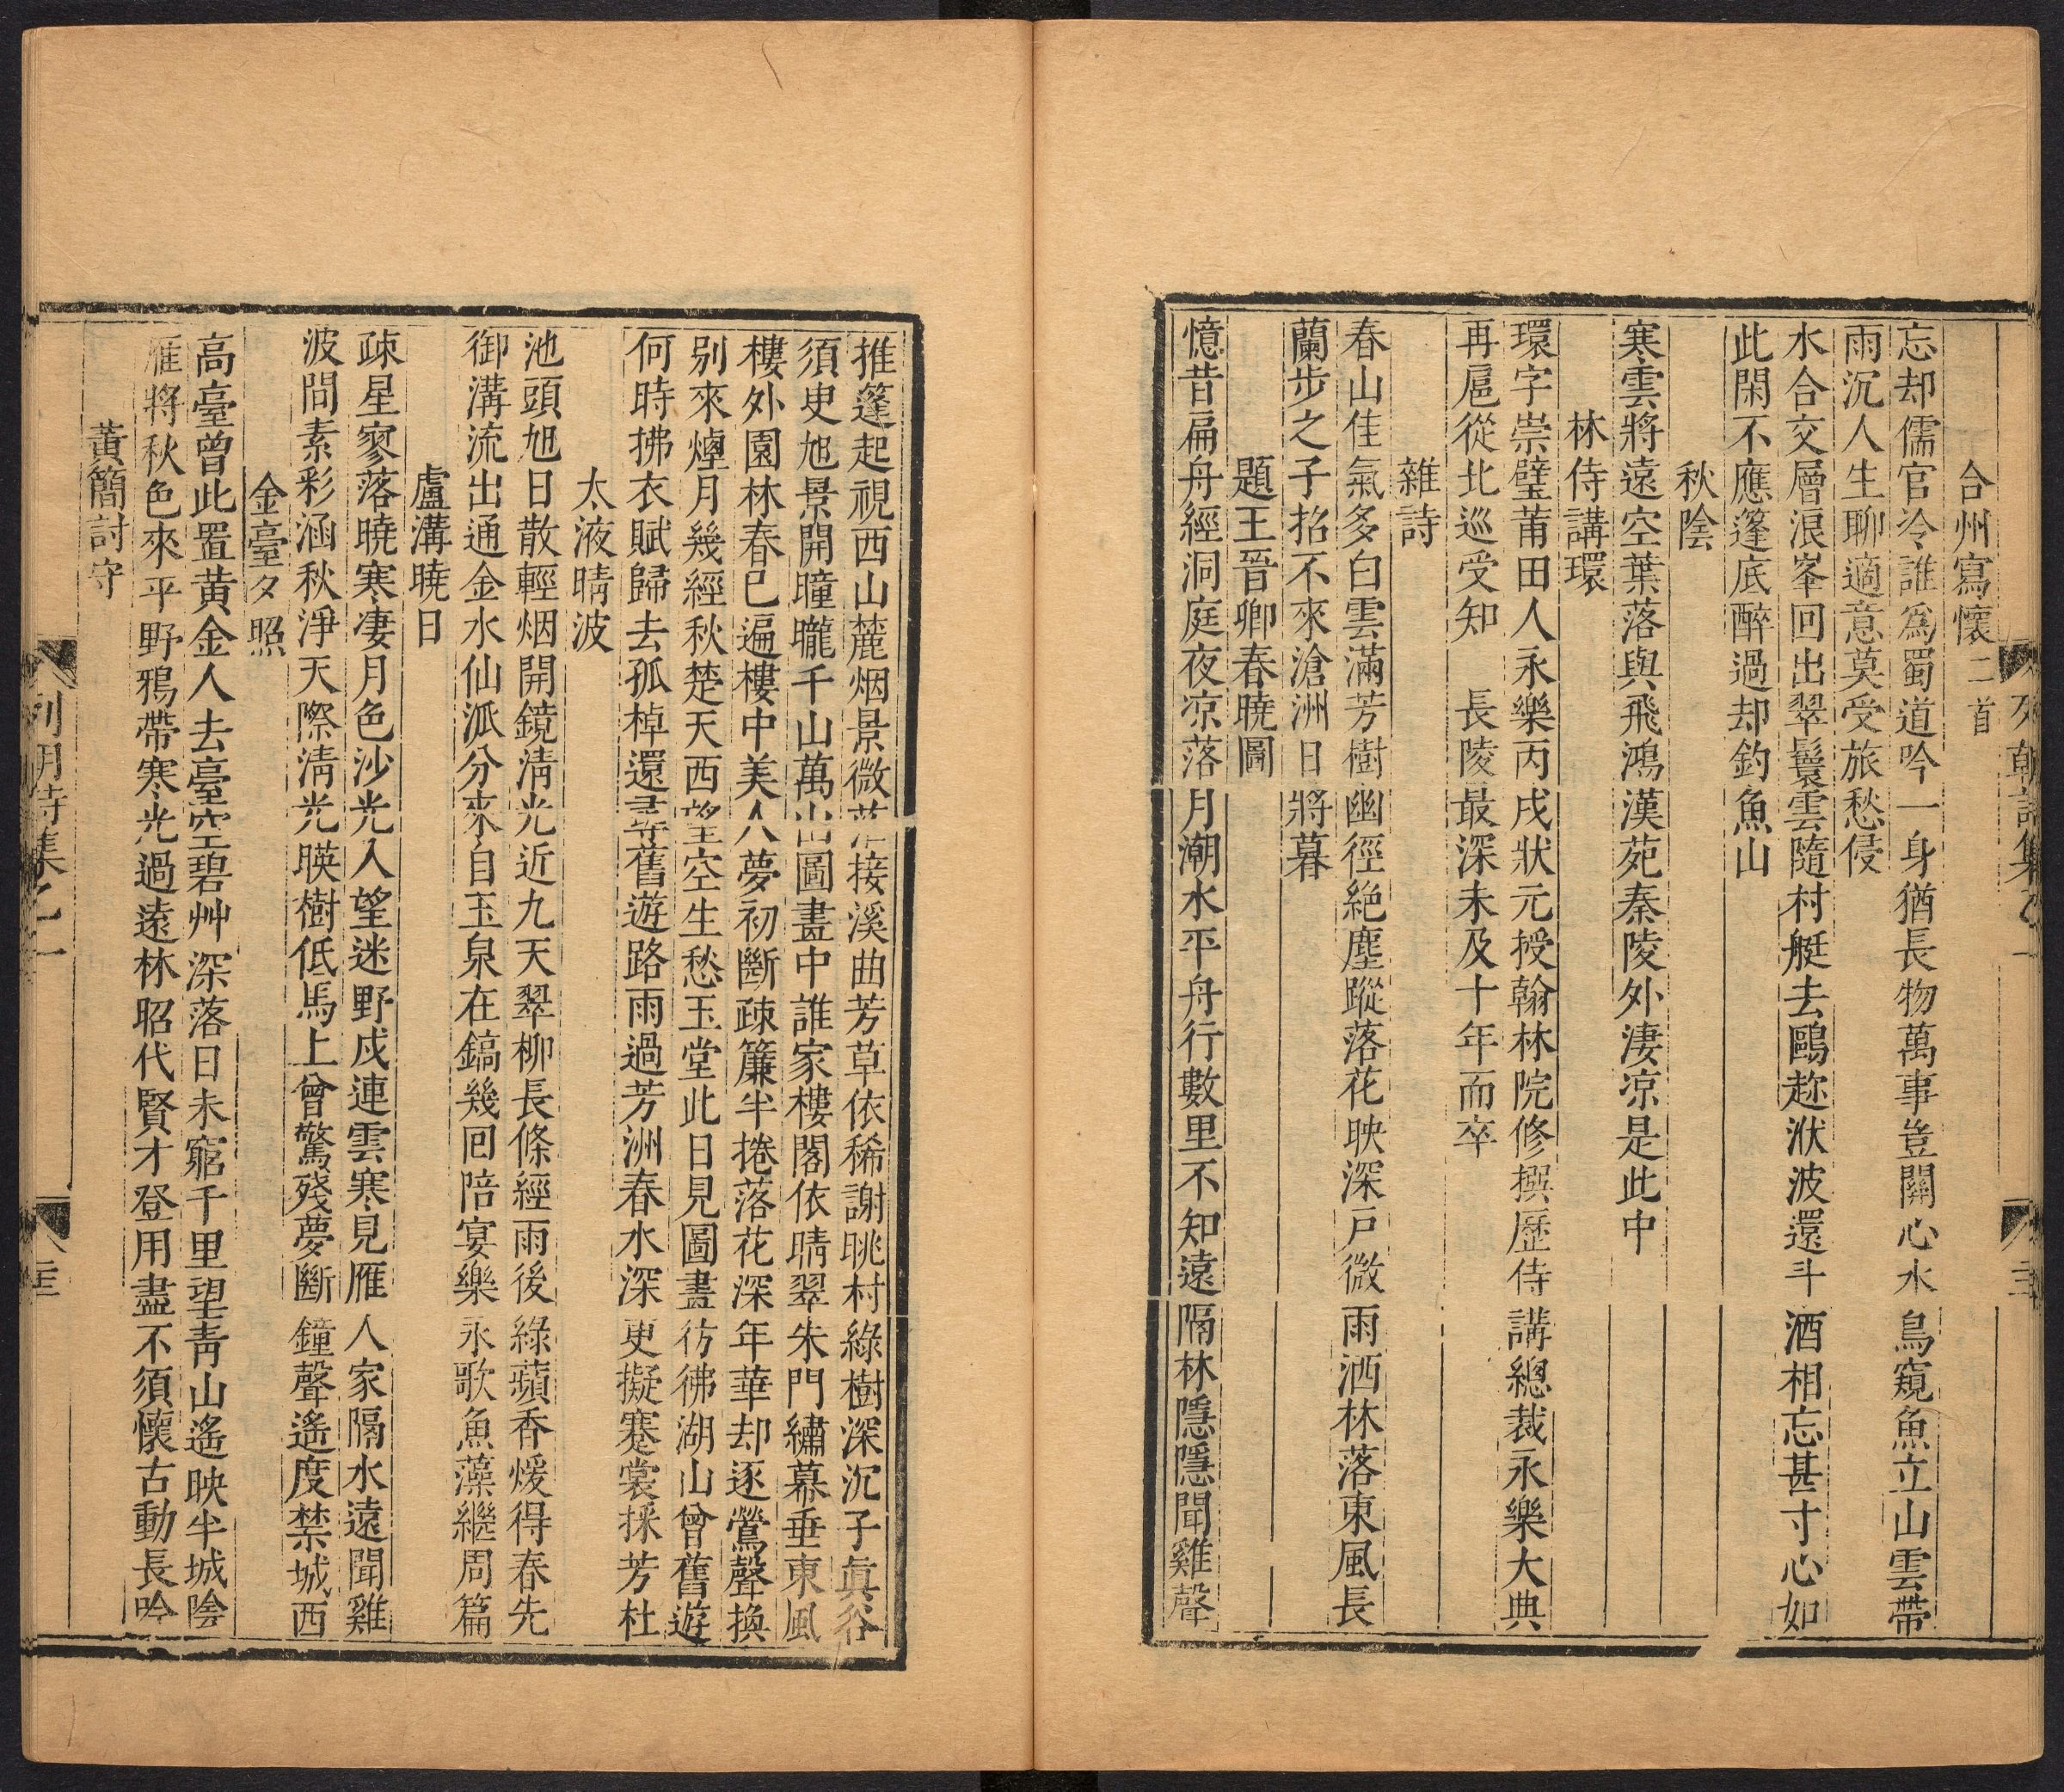 合州寫懷二首
忘却儒官冷誰爲蜀道吟一身猶長物萬事豈關心水鳥窺魚立山雲帶
雨沉人生聊適意莫受旅愁侵
水合交層浪峯回出翠鬟雲隨村艇去鷗趂洑波還斗酒相忘甚寸心如
此閑不應篷底醉過却釣魚山
秋陰
寒雲將遠空葉落與飛鴻漢苑秦陵外淒凉是此中
林侍講環
環字崇璧莆田人永樂丙戌狀元授翰林院修撰歷侍講總裁永樂大典
再扈從北巡受知 長陵最深未及十年而卒
雜詩
春山佳氣多白雲滿芳樹幽徑絶塵蹤落花映深戸微雨洒林落東風長
蘭步之子招不來滄洲日將暮
題王晉卿春曉圖
憶昔扁舟經洞庭夜凉落月潮水平舟行數里不知遠隔林隱隱聞雞聲
推篷起視西山麓烟景微茫接溪曲芳草依稀謝眺村綠樹深沉子眞谷
須臾旭景開曈曨千山萬山圖畫中誰家樓閣依晴翠朱門繡幕垂東風
樓外園林春已遍樓中美人夢初斷疎簾半捲落花深年華却逐鶯聲換
别來煙月幾經秋楚天西望空生愁玉堂此日見圖畫彷彿湖山曾舊遊
何時拂衣賦歸去孤棹還尋舊遊路雨過芳洲春水深更擬蹇裳採芳杜
太液晴波
池頭旭日散輕烟開鏡淸光近九天翠柳長條經雨後綠蘋香煖得春先
御溝流出通金水仙派分來自玉泉在鎬幾回陪宴樂永歌魚藻繼周篇
盧溝曉日
疎星寥落曉寒凄月色沙光入望迷野戍連雲寒見雁人家隔水遠聞雞
波間素彩涵秋淨天際淸光暎樹低馬上曾驚殘夢斷鐘聲遙度禁城西
金臺夕照
高臺曾此置黃金人去臺空碧艸深落日未窮千里望靑山遙映半城陰
雁將秋色來平野鴉帶寒光過遠林昭代賢才登用盡不須懷古動長吟
黃簡討守
列朝詩集乙一